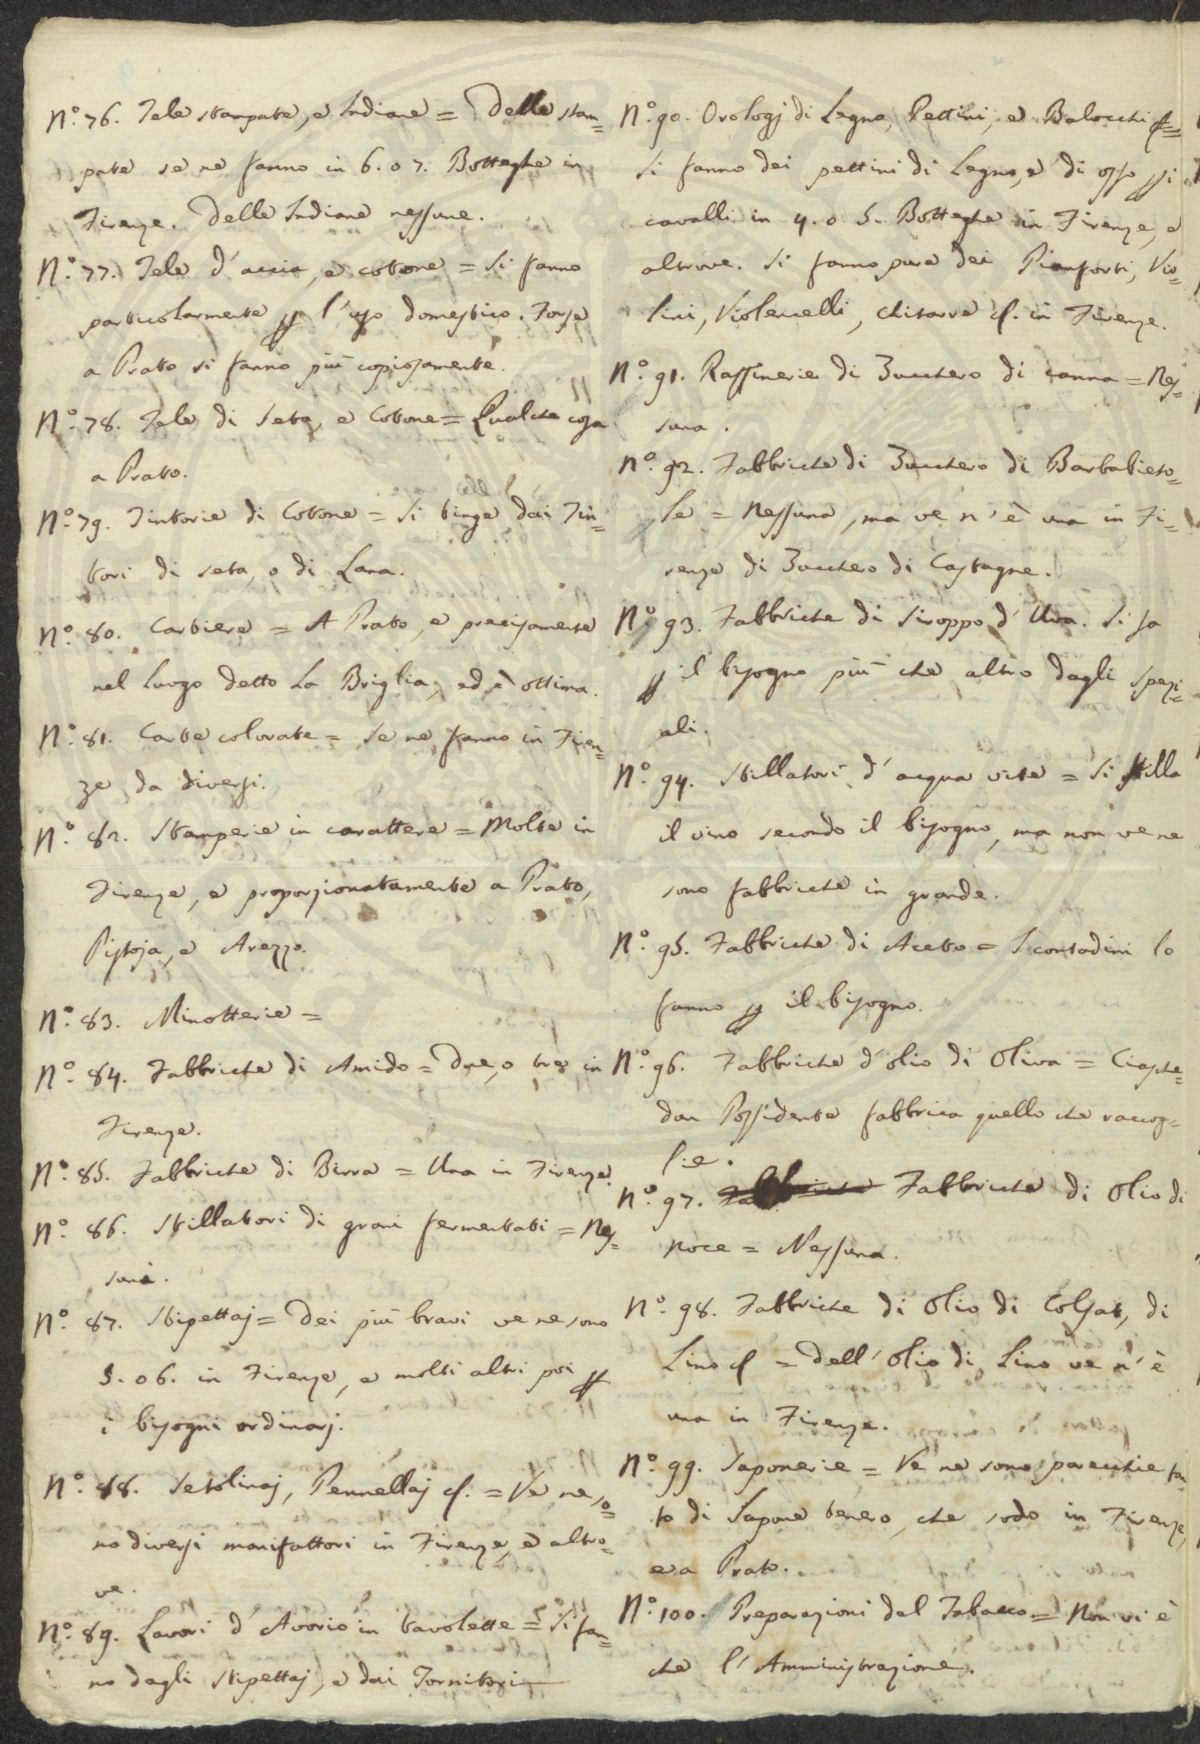 N.º 76. Tele stampate, e Indiane = Delle stam=
pate se ne fanno in 6. o 7. Botteghe in
Firenze. Delle Indiane nessune.
N.º 77. Tele d'accia, e cotone = Si fanno
particolarmente p l'uso domestico. Forse
a Prato si fanno più copiosamente.
N.º 78. Tele di Seta, e Cotone = Qualche cosa
a Prato.
N.º 79. Tintorie di Cotone = Si tinge dai Tin=
tori di seta, o di Lana.
N.º 80. Cartiere = A Prato, e precisamente
nel Luogo detto La Briglia, ed è ottima.
N.º 81. Carte colorate = Se ne fanno in Firen=
ze da diversi.
N.º 82. Stamperie in carattere = Molte in
Firenze, e proporzionatamente a Prato,
Pistoja, e Arezzo.
N.º 83. Minotterie =
N.º 84. Fabbriche di Amido = Due, o tre in
Firenze.
N.º 85. Fabbriche di Birra = Una in Firenze.
N.º 86. Stillatori di grani fermentati = Nes=
suna.
N.º 87. Stipettaj = Dei più bravi ve ne sono
5. o 6. in Firenze, e molti altri poi p
i bisogni ordinarj.
N.º 88. Setolinaj, Pennellaj &. = Ve ne so=
no diversi manifattori in Firenze, e altro=
ve.
N.º 89. Lavori d'Avorio in tavolette = Si fan=
no dagli Stipettaj, e dai Tornitori
N.º 90. Orologj di Legno, Pettini, e Balocchi &=
Si fanno dei pettini di Legno, e di osso p i
cavalli in 4. o 5. Botteghe in Firenze, e
altrove. Si fanno pure dei Pianforti, Vio=
lini, Violoncelli, chitarre &. in Firenze.
N.º 91. Raffinerie di Zucchero di canna = Nes=
suna.
N.º 92. Fabbriche di Zucchero di Barbabieto=
le = Nessuna, ma ve n'è una in Fi=
renze di Zucchero di Castagne.
N.º 93. Fabbriche di Siroppo d'Uva. Si fa
p il bisogno più che altro dagli Spezi=
ali.
N.º 94. Stillatori d'acqua vite = Si stilla
il vino secondo il bisogno, ma non ve ne
sono fabbriche in grande.
N.º 95. Fabbriche di Aceto = I contadini lo
fanno p il bisogno.
N.º 96. Fabbriche d'olio di Oliva = Ciasche=
dun Possidente fabbrica quello che raccog=
lie.
N.º 97. Fabbriche di Olio di
noce = Nessuna.
N.º 98. Fabbriche di Olio di Colsat, di
Lino & = Dell'Olio di Lino ve n'è
una in Firenze.
N.º 99. Saponerie = Ve ne sono parecchie tan
to di Sapone tenero, che sodo in Firenze,
e a Prato.
N.º 100. Preparazioni del Tabacco = Non vi è
che l'Amministrazione.